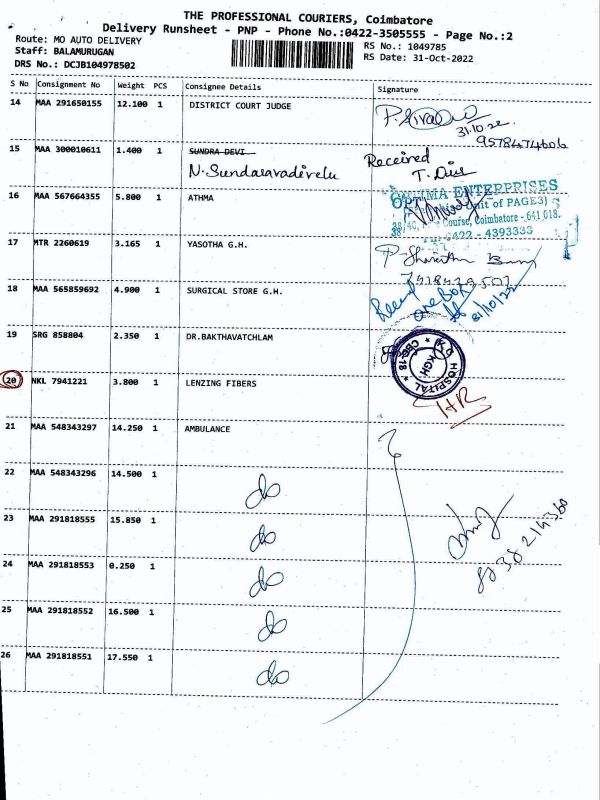 THE PROFESSIONAL COURIERS, Coimbatore
Delivery Runsheet - PNP - Phone No.:0422-3505555 - Page No.:2
Route: MO AUTO DELIVERY
RS No.: 1049785
Staff: BALAMURUGAN
RS Date: 31-Oct-2022
DRS No.: DCJB104978502
S No Consignment No Weight PCS Consignee Details Signature
14 MAA 291650155 12.100 1 DISTRICT COURT JUDGE
31.10.22
9578474606
15 MAA 300010611 1.400 1 SUNDRA DEVI Received
N. Sundaravadivelu
16 MAA 567664355 5.800 1 ATHMA
ENTERPRISES
Unit of PAGE3)
Course, Coimbatore - 641 018.
0422 - 4393333
17 MTR 2260619 3.165 1 YASOTHA G.H.
18 MAA 565859692 4.900 1 SURGICAL STORE G.H.
one Box
31/10/22
19 SRG 858804 2.350 1 DR.BAKTHAVATCHLAM
KGH HOSPITAL * CBE-18 *
20 NKL 7941221 3.800 1 LENZING FIBERS
HR
21 MAA 548343297 14.250 1 AMBULANCE
22 MAA 548343296 14.500 1 do
23 MAA 291818555 15.850 1 do
24 MAA 291818553 0.250 1 do
25 MAA 291818552 16.500 1 do
26 MAA 291818551 17.550 1 do